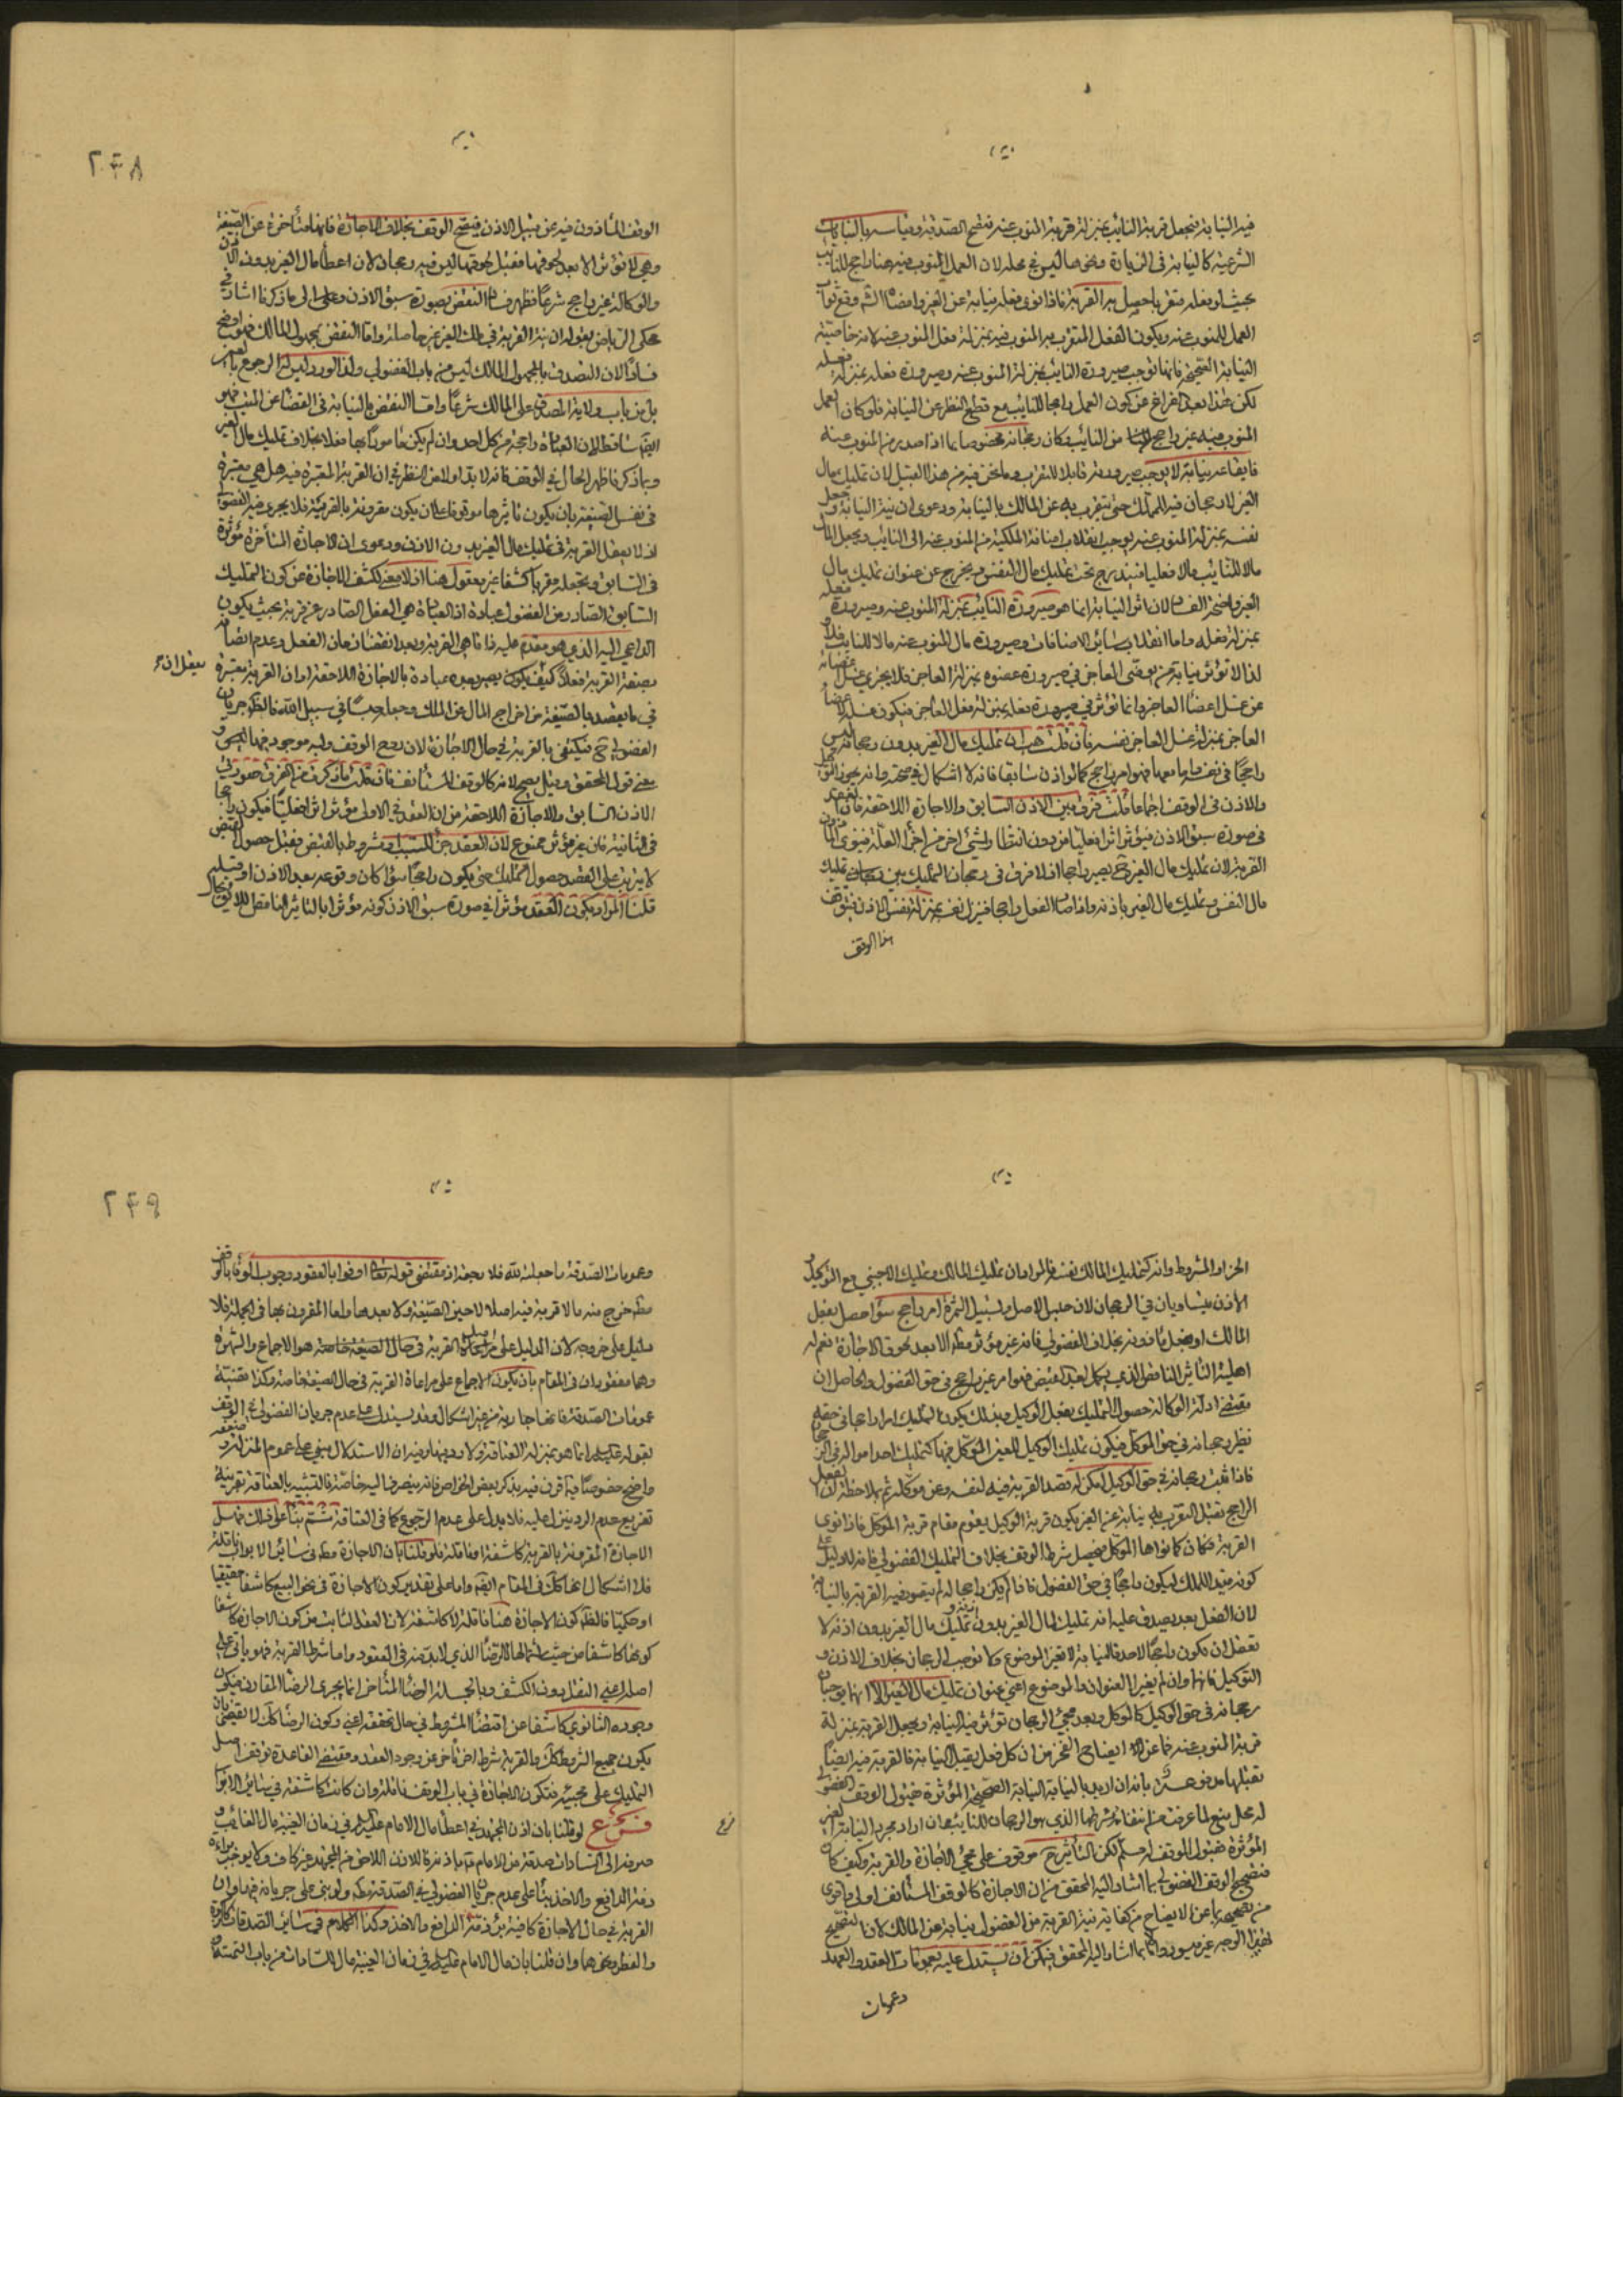 فيه النيابة فيجعل قربة النائب بمنزلة قربة المنوب عنه فتصح الصدقة وقياسه بالنيابات
الشرعية كالنيابة فى الزيارة ونحوها ليس فى محله لان العمل المنوب فيه هنا راجح للنائب
بحيث لو فعله متقربا حصل به القربة فاذا نوى فعله نيابة عن الغير وامضاه الش وقع ثواب
العمل للمنوب عنه ويكون الفعل المتقرب به المنوب فيه بمنزلة فعل المنوب عنه لانه خاصية
النيابة الصحيحة فانها توجب صيرورة النائب بمنزلة المنوب عنه وصيرورة فعله بمنزلة فعله
لكن هذا بعد الفراغ عن كون العمل راجحا للنائب مع قطع النظر عن النيابة فلو كان العمل
المنوب فيه غير راجح من النائب فكان رجحانه مخصوصا بما اذا صدر من المنوب عنه
فايقاعه نيابة لا يوجب صيرورته قابلا للتقرب وما نحن فيه من هذا القبيل لان تمليك مال
الغير لا رجحان فيه للمملك حتى يتقرب به عن المالك بالنيابة ودعوى ان نية النيابة وجعل
نفسه بمنزلة المنوب عنه يوجب انقلاب اضافة الملكية من المنوب عنه الى النائب ويجعل المال
مالا للنائب مالا فعليا فيندرج تحت تمليك مال النفس ويخرج عن عنوان تمليك مال
الغير واضحة الفساد لان اثر النيابة انما هو صيرورة النائب بمنزلة المنوب عنه وصيرورة فعله
بمنزلة فعله واما انقلاب سائر الاضافات وصيرورة مال المنوب عنه مالا للنائب فلا و
لذا لا تؤثر نيابة من يوضئ العاجز فى صيرورة عضوه بمنزلة العاجز فلا يجزى غسل اعضائه
عن غسل اعضاء العاجز وانما تؤثر فى صيرورة فعله بمنزلة فعل العاجز فيكون غسله لاعضاء
العاجز بمنزلة غسل العاجز نفسه فان قلت هب ان تمليك مال الغير بدون رجحانه ليس
راجحا فى نفسه واما معها فهو امر راجح كما لو اذن سابقا فانه لا اشكال فى صحته وانه يجوز التوكيل
والاذن فى الوقف اجماعا قلت فرق بين الاذن السابق والاجازة اللاحقة فان العقد
فى صورة سبق الاذن مؤثر اثرا فعليا من دون انتظار لشئ اخر من اجزاء العلة فينوى المأذون
القربة لان تمليك مال الغير ح يصير راجحا اذ لا فرق فى رجحان التمليك بين تمليك
مال النفس وتمليك مال الغير باذنه واذا صار الفعل راجحا فينزل نفسه بمنزلة نفس الاذن فيوقف
هذا الوقف
٢۴٨
الوقف المأذون فيه عن قبل الاذن فيصح الوقف بخلاف الاجازة فانها متأخرة عن الصيغة
وهى لا تؤثر الا بعد لحوقها فقبل لحوقها ليس فيه رجحان لان اعطاء مال الغير بدون الاذن
والوكالة غير راجح شرعا فظهر فساد النقض بصورة سبق الاذن وعلى الى ما ذكرنا اشار فى
محكى الرياض بقوله ان نية القربة فى ملك الغير غير حاصلة واما النقض بمجهول المالك فهو اوضح
فسادا لان التصدق بالمجهول المالك ليس من باب الفضولى ولذا لو رد ليس له الرجوع
بل من باب ولاية المتصدق على المالك شرعا واما النقض بالنيابة فى القضاء عن الميت فهو
ايضا ساقط لان العبادة راجحة من كل احد وان لم يكن مأمورا بها فعلا بخلاف تمليك مال الغير
وبما ذكرنا ظهر الحال فى الوقف فانه لا بد اولا من النظر فى ان القربة المعتبرة فيه هل هى معتبرة
فى نفس الصيغة بان يكون تاثيرها موقوفا على ان يكون مقرونة بالقربة فلا يجرى فيه الفضولى
اذ لا يعقل القربة فى تمليك مال الغير بدون الاذن ودعوى ان الاجازة المتأخرة مؤثرة
فى السابق ويجعله مقربا كشفا غير معقول هنا اذ لا معنى لكشف الاجازة عن كون التمليك
السابق الصادر من الفضولى عبادة اذ العبادة هى الفعل الصادر عن قربة بحيث يكون
الداعى اليه الذى هو مقدم عليه ذاتا هى القربة وبعد انقضاء زمان الفعل وعدم اتصافه
بصفة القربة فعلا كيف يعقل ان يصير عبادة بالاجازة اللاحقة او ان القربة معتبرة
فى ما يقصد بالصيغة من اخراج المال عن الملك وجعله حبسا فى سبيل الله فالظ جريان
الفضولى ح فيكتفى بالقربة فى حال الاجازة لان روح الوقف ولبه موجود فيها وهو
معنى قول المحقق وقيل يصح لانه كالوقف المستأنف فان قلت ما ذكرت من الفرق صورتى
الاذن السابق والاجازة اللاحقة من ان العقد فى الاولى مؤثر اثرا فعليا فيكون راجحا
فى الثانية فانه غير مؤثر ممنوع لان العقد جزء للسبب او مشروط بالقبض فقبل حصول القبض
لا يترتب على العقد حصول التمليك حتى يكون راجحا سواء كان وقوعه بعد الاذن او قبله
قلنا المراد بكون العقد مؤثرا فى صورة سبق الاذن كونه مؤثرا بالتاثير الناقص اللائق بحال
الجزء او المشروط وانه كتمليك المالك نفسه فالمراد ان تمليك المالك وتمليك الاجنبى مع التوكيل و
الاذن متساويان فى الرجحان لان حبس الاصل وتسبيل الثمرة امر راجح سواء حصل بفعل
المالك او بفعل مأذونه بخلاف الفضولى فانه غير مؤثر مطلقا الا بعد لحوق الاجازة نعم له
اهلية التاثير الناقص الذى يكمل بعد القبض فهو امر غير راجح فى حق الفضولى والحاصل ان
مقتضى ادلة الوكالة حصول التمليك بفعل الوكيل وبذلك يكون التمليك امرا راجحا فى حقه
نظير رجحانه فى حق الموكل فيكون تمليك الوكيل للعين الموكل فيها كتمليك احد اموال
فاذا ثبت رجحانه فى حق الوكيل امكن له قصد القربة فيه لنفسه وعن موكله ثم بملاحظة ان الفعل
الراجح يقبل التقرب به نيابة عن الغير يكون قربة الوكيل يقوم مقام قربة الموكل فاذا نوى
القربة فكان كما نواها الموكل فيحصل شرط الوقف بخلاف التمليك الفضولى فانه لا دليل على
كونه مفيد الملك ليكون راجحا فى حق الفضولى فاذا لم يكن راجحا له لم يتصور فيه القربة بالنيابة
لان الفعل بعد يصدق عليه انه تمليك لمال الغير بدون اذنه وتمليك مال الغير بدون اذنه لا
يعقل ان يكون راجحا لاحد فالنيابة لا تغير الموضوع ولا توجب الرجحان بخلاف الاذن و
التوكيل فانهما وان لم يغيرا العنوان والموضوع اعنى عنوان تمليك مال الغير الا انهما يوجبان
رجحانه فى حق الوكيل كالموكل وبعد مجئ الرجحان تؤثر فيه النيابة ويجعل القربة بمنزلة
قربة المنوب عنه فما عن الايضاح الفخر من ان كل فعل يقبل النيابة فالقربة فيه ايضا
يقبلها مدفوع بانه ان اريد بالنيابة النيابة الصحيحة المؤثرة فقبول الوقف الفضولى
له محل منع لما عرفت من انتفاء شرطها الذى هو الرجحان للنائب وان اراد مجرد النيابة الغير
المؤثرة فقبول الوقف له مسلم لكن التأثير ح موقوف على مجئ الاجازة والقربة وكيف كان
فتصحيح الوقف الفضولى بما اشار اليه المحقق من ان الاجازة كالوقف المستأنف اولى واقوى
من تصحيحه بما عن الايضاح من كفاية نية القربة من الفضولى نيابة عن المالك لان التصحيح
بهذا الوجه غير ميسور واما بما اشار اليه المحقق فيمكن ان يستدل عليه بعمومات العقد والعهد
وعمومات
٢۴٩
وعمومات الصدقة ما جعلت لله فلا رجعة اذ مقتضى قوله تعالى اوفوا بالعقود وجوب الوفاء بالوقف
مطلقا خرج منه ما لا قربة فيه اصلا لا حين الصيغة ولا بعدها واما المقرون بها فى الجملة فلا
دليل على خروجه لان الدليل على مراعاة القربة فى حال الصيغة خاصة هو الاجماع والشهرة
وهما مفقودان فى المقام بان يكون الاجماع على مراعاة القربة فى حال الصيغة خاصة وكذا قضية
عمومات الصدقة فانها جارية من غير اشكال وقد يستدل على عدم جريان الفضولى فى الوقف
بقوله عليه السلام انما هو بمنزلة العتاقة ولا رد فيها وفيه ان الاستدلال مبنى على عموم المنزلة وضعفه
واضح خصوصا فيما قرن فيه بذكر بعض الخواص فانه ينصرف اليه خاصة فالتشبيه بالعتاقة بقرينة
تفريع عدم الرد ينزل عليه فلا يدل على عدم الرجوع كما فى العتاقة ثم بناء على ذلك فهل
الاجازة المقرونة بالقربة كاشفة او ناقلة فلو قلنا بان الاجازة مطلقا فى سائر الابواب ناقلة
فلا اشكال انها كك فى المقام ايضا واما على تقدير كون الاجازة فى نحو البيع كاشفا حقيقيا
او حكميا فالظ كون الاجازة هنا ناقلة لا كاشفة لان القدر الثابت من كون الاجازة كاشفا
كونها كاشفا من حيث اشتمالها للرضاء الذى لا بد منه فى العقود واما شرط القربة فهو باق على
اصله اعنى النقل دون الكشف وبالجملة الرضاء المتأخر انما يجرى الرضاء المقارن فيكون
وجوده الثانوى كاشفا عن اقتضاء المشروط فى حال تحققه اعنى وكون الرضا كك لا يقتضى ان
يكون جميع الشروط كك والقربة شرط اخر متأخر عن وجود العقد ومقتضى القاعدة توقف اصل
التمليك على مجيئه فتكون الاجازة فى باب الوقف ناقلة وان كانت كاشفة فى سائر الابواب
فرع لو قلنا بان اذن المجتهد فى اعطاء مال الامام عليه السلام فى زمان الغيبة مال الغائب و
صرفه الى السادات صدقة من الامام باذنه فالاذن اللاحق من المجتهد غير كاف ولا يوجب براءة
ذمة الدافع والاخذ بناء على عدم جريان الفضولى فى الصدقة مطلقا ولو بنى على جريانه فيها وان
القربة فى حال الاجازة كافية برئ ذمة الدافع والاخذ وكذا الكلام فى سائر الصدقات كالزكوة
والفطرة ونحوهما وان قلنا بان مال الامام عليه السلام فى زمان الغيبة مال للسادات من باب التتمة
فرع